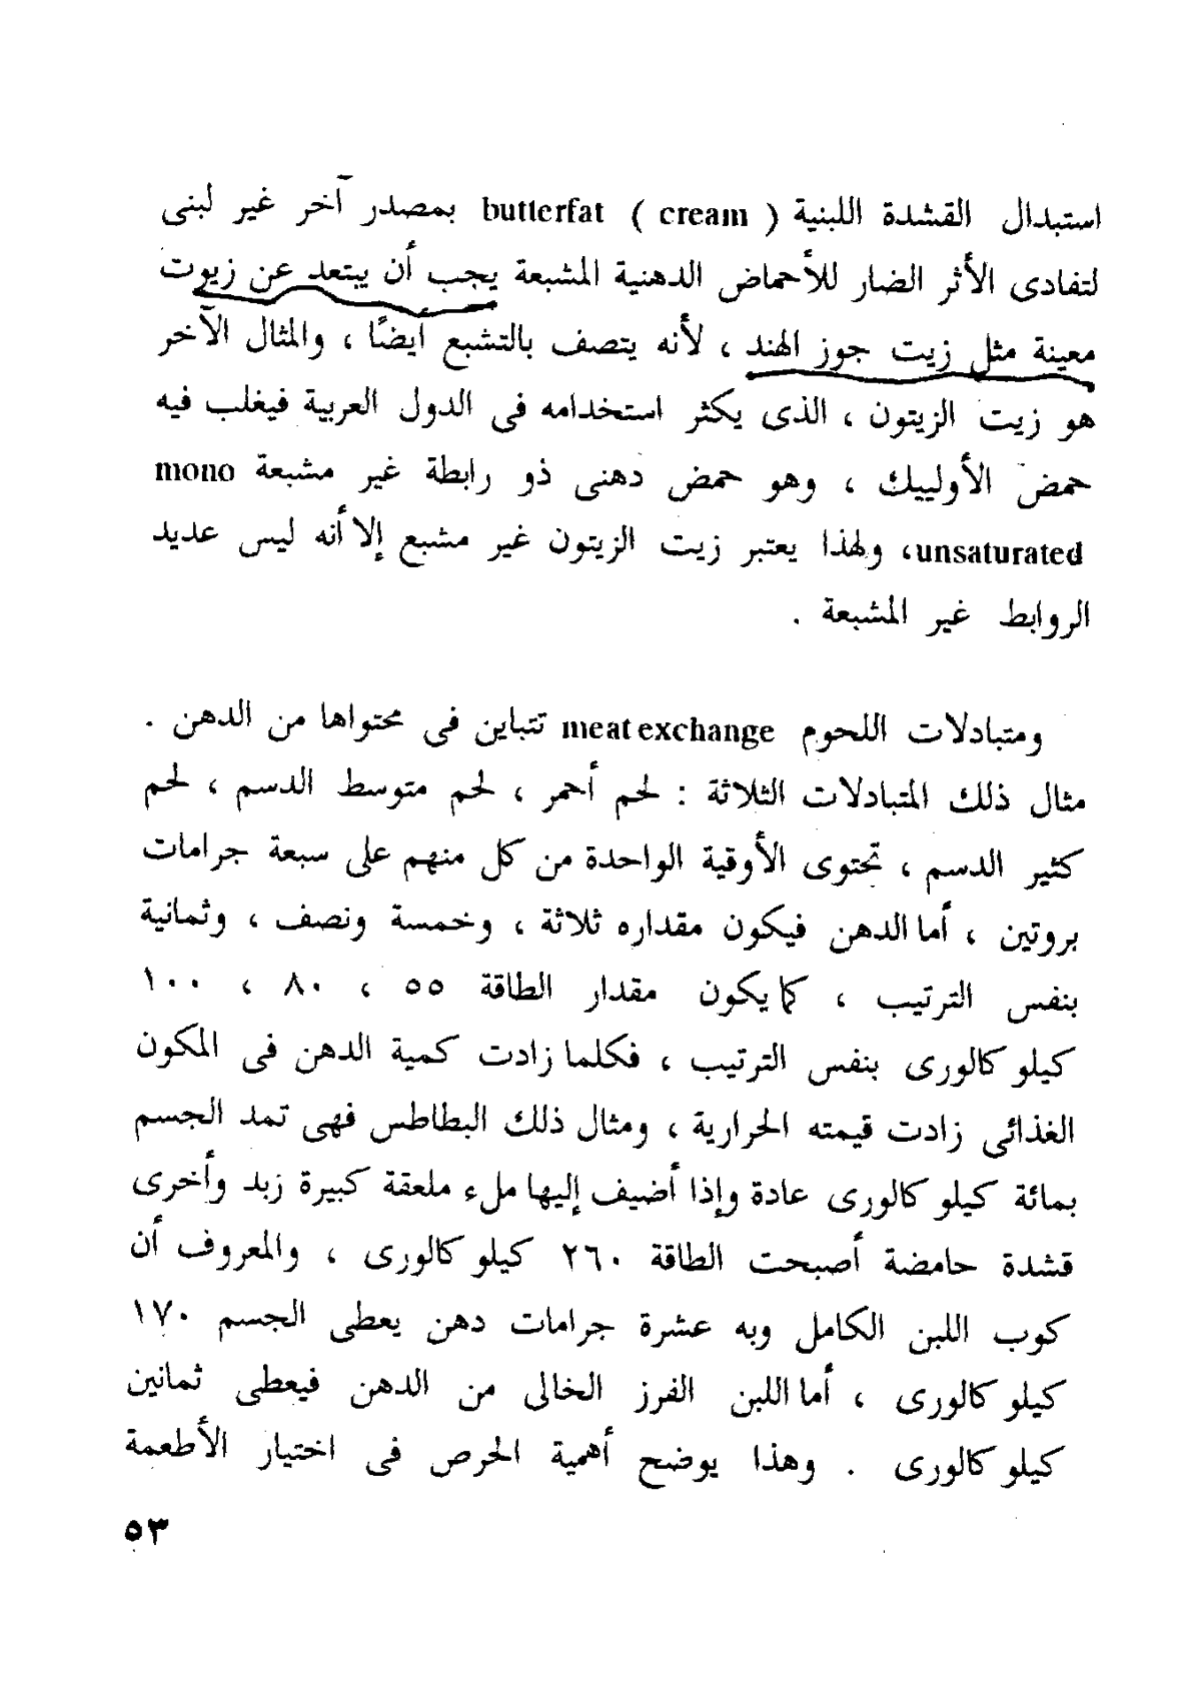 استبدال القشدة اللبنية ( cream ) butterfat بمصدر آخر غير لبنى
لتفادى الأثر الضار للأحماض الدهنية المشبعة يجب أن يبتعد عن زيوت
معينة مثل زيت جوز الهند ، لأنه يتصف بالتشبع أيضًا ، والمثال الآخر
هو زيت الزيتون ، الذى يكثر استخدامه فى الدول العربية فيغلب فيه
حمض الأولييك ، وهو حمض دهنى ذو رابطة غير مشبعة mono
unsaturated، ولهذا يعتبر زيت الزيتون غير مشبع إلا أنه ليس عديد
الروابط غير المشبعة .
ومتبادلات اللحوم meat exchange تتباين فى محتواها من الدهن .
مثال ذلك المتبادلات الثلاثة : لحم أحمر ، لحم متوسط الدسم ، لحم
كثير الدسم ، تحتوى الأوقية الواحدة من كل منهم على سبعة جرامات
بروتين ، أما الدهن فيكون مقداره ثلاثة ، وخمسة ونصف ، وثمانية
بنفس الترتيب ، كما يكون مقدار الطاقة ٥٥ ، ٨٠ ، ١٠٠
كيلو كالورى بنفس الترتيب ، فكلما زادت كمية الدهن فى المكون
الغذائى زادت قيمته الحرارية ، ومثال ذلك البطاطس فهى تمد الجسم
بمائة كيلو كالورى عادة وإذا أضيف إليها ملء ملعقة كبيرة زبد وأخرى
قشدة حامضة أصبحت الطاقة ٢٦٠ كيلو كالورى ، والمعروف أن
كوب اللبن الكامل وبه عشرة جرامات دهن يعطى الجسم ١٧٠
كيلو كالورى ، أما اللبن الفرز الخالى من الدهن فيعطى ثمانين
كيلو كالورى . وهذا يوضح أهمية الحرص فى اختيار الأطعمة
٥٣